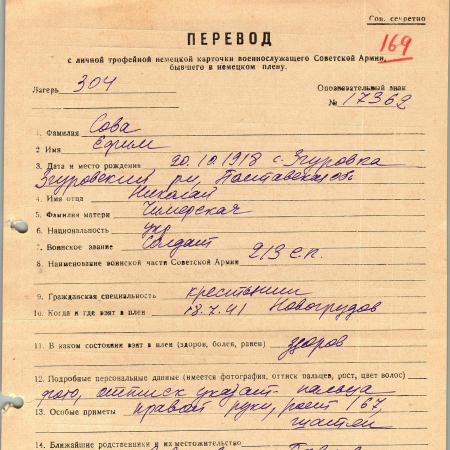 Сов. секретно
169
ПЕРЕВОД
с личной трофейной немецкой карточки военнослужащего Советской Армии,
бывшего в немецком плену.
Лагерь 304
Опознавательный знак
№ 17362
1. Фамилия Сова
2 Имя Ефим
3. Дата и место рождения 20.10.1918 с. Згуровка
Згуровский р-н, Полтавская обл.
4. Имя отца Николай
5. Фамилия матери Чимерская
6. Национальность укр
7. Воинское звание Солдат
8. Наименование воинской части Советской Армии 213 с.п.
9. Гражданская специальность крестьянин
10. Когда и где взят в плен 18.7.41 Новогрудов
11. В каком состоянии взят в плен (здоров, болен, ранен) здоров
12. Подробные персональные данные (имеется фотография, оттиск пальцев, рост, цвет волос)
фото, оттиск указат. пальца
13. Особые приметы правой руки, рост 167,
14. Ближайшие родственники и их местожительство